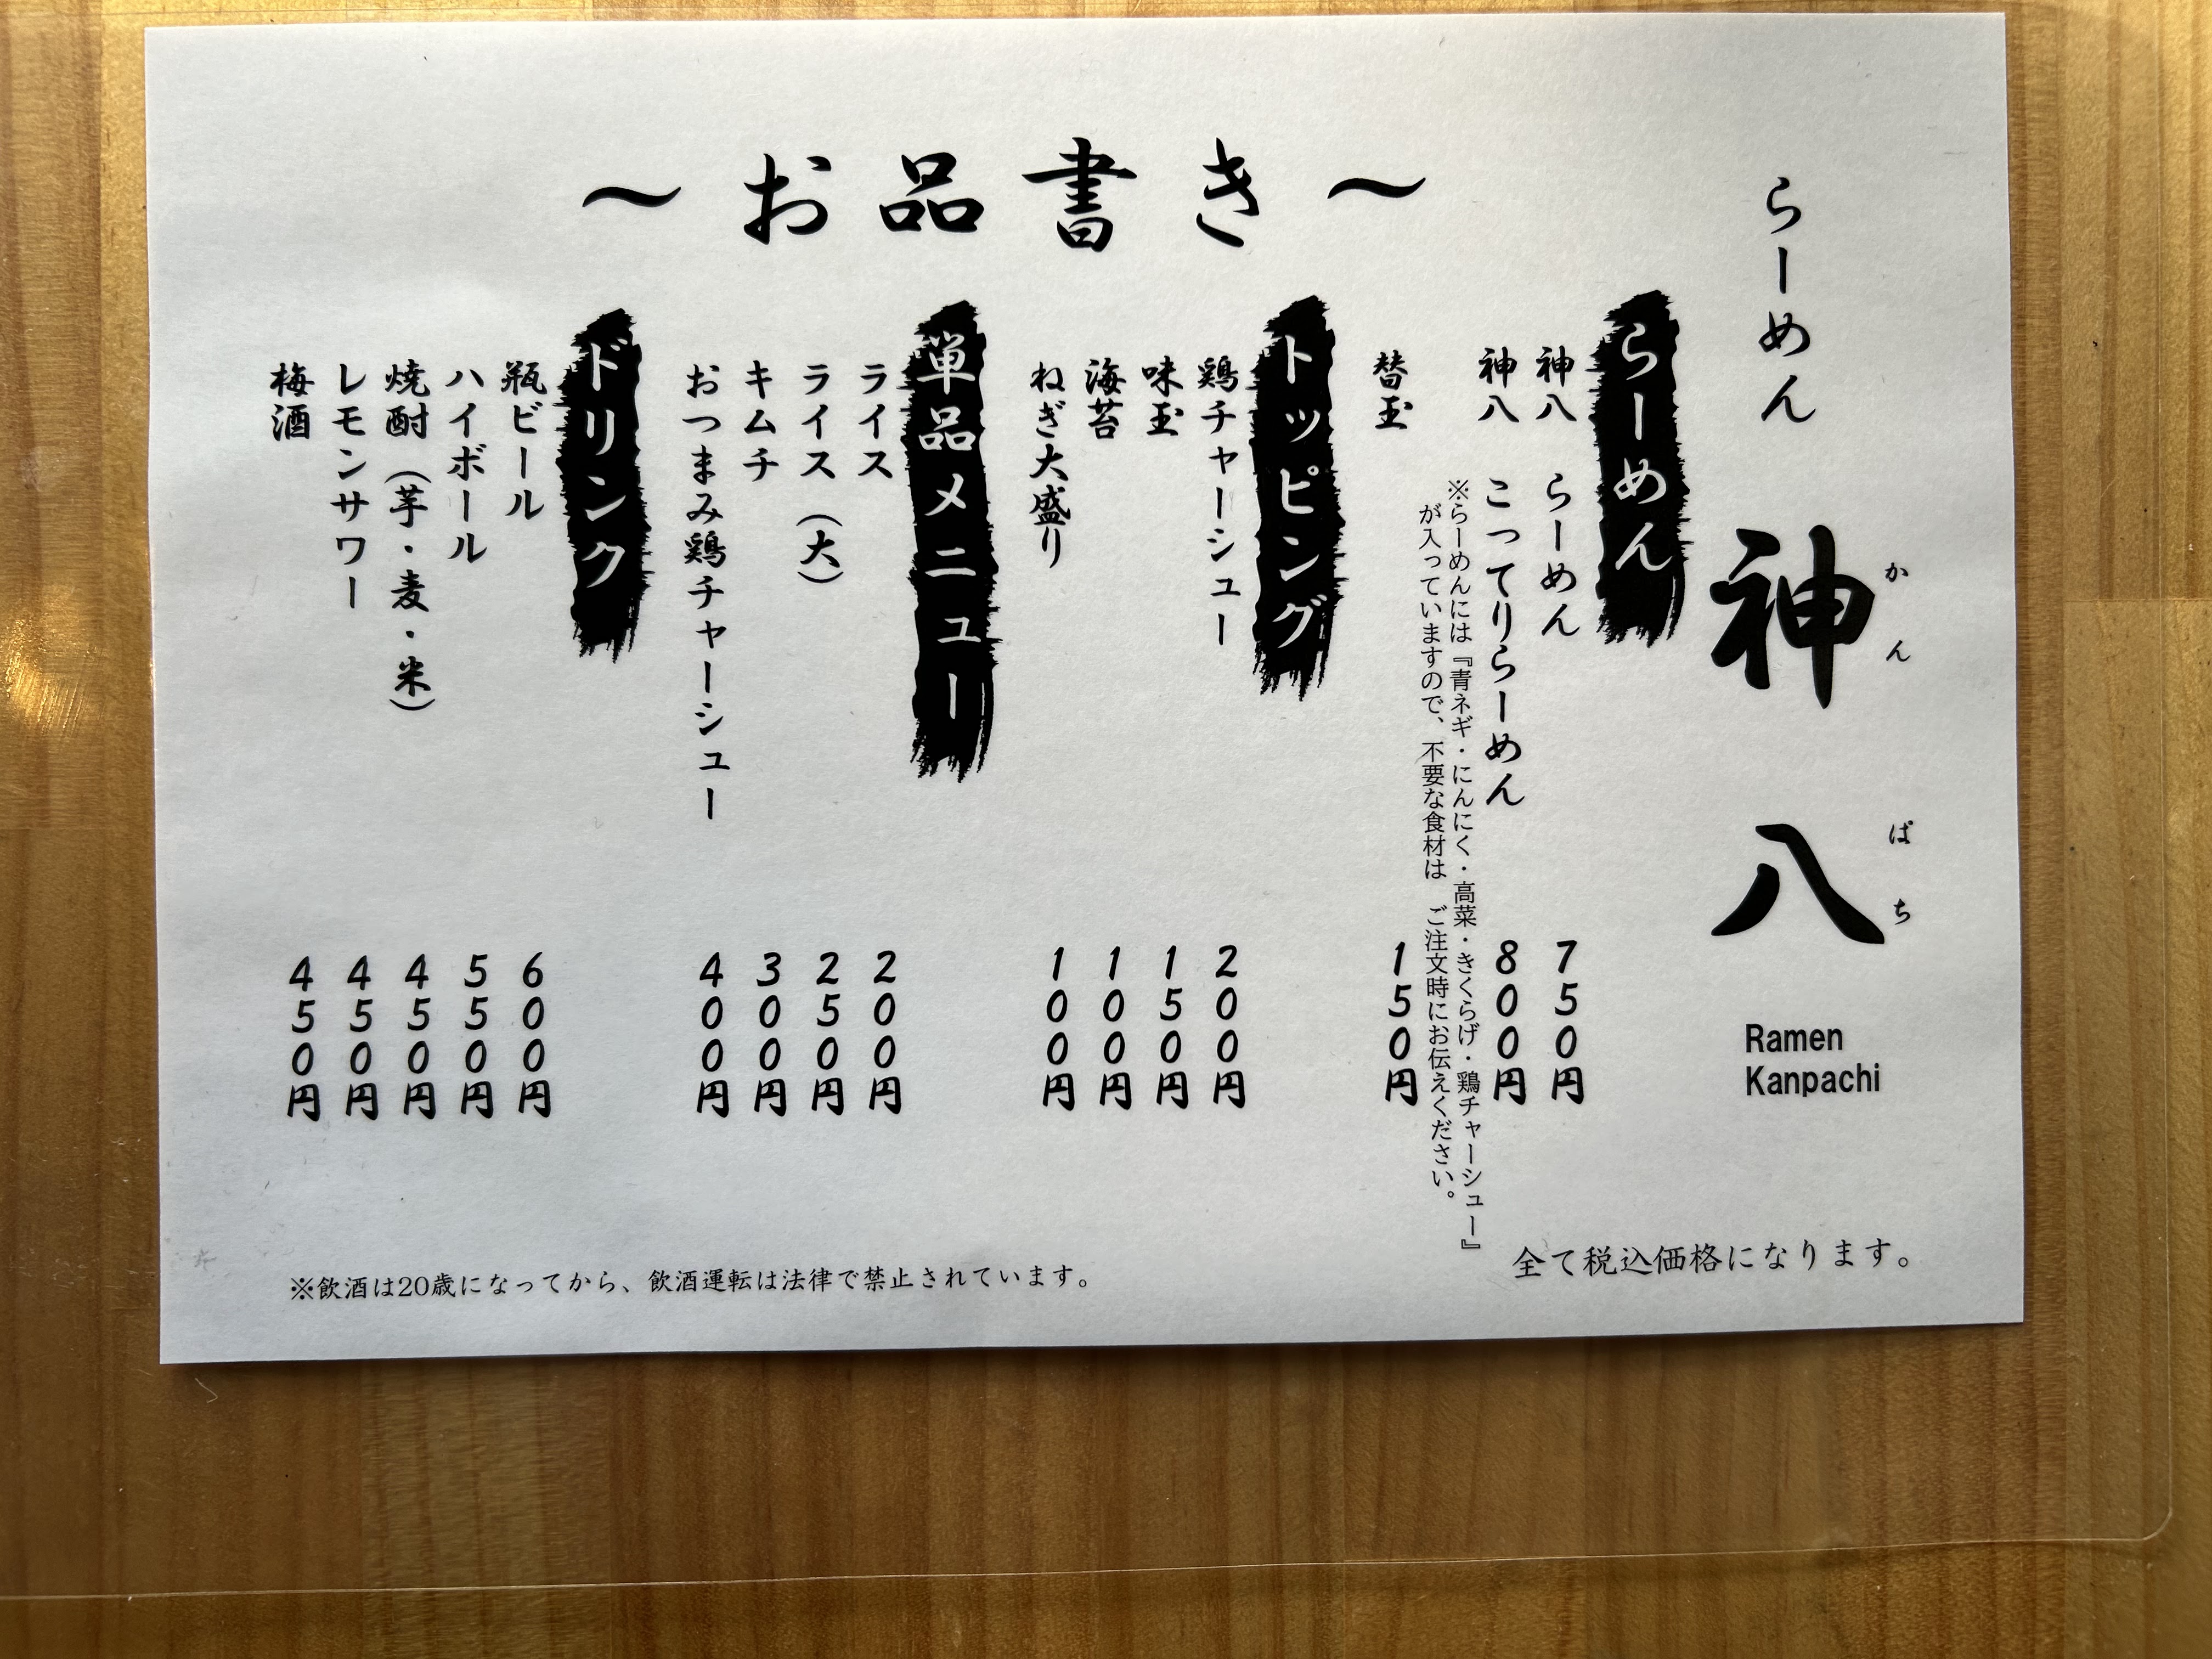 ～お品書き～
らーめん 神八
かんぱち
Ramen
Kanpachi
らーめん
神八 らーめん 750円
神八 こってりらーめん 800円
※らーめんには『青ネギ・にんにく・高菜・きくらげ・鶏チャーシュー』
が入っていますので、不要な食材は ご注文時にお伝えください。
替玉 150円
トッピング
鶏チャーシュー 200円
味玉 150円
海苔 100円
ねぎ大盛り 100円
単品メニュー
ライス 200円
ライス（大） 250円
キムチ 300円
おつまみ鶏チャーシュー 400円
ドリンク
瓶ビール 600円
ハイボール 550円
焼酎（芋・麦・米） 450円
レモンサワー 450円
梅酒 450円
全て税込価格になります。
※飲酒は20歳になってから、飲酒運転は法律で禁止されています。